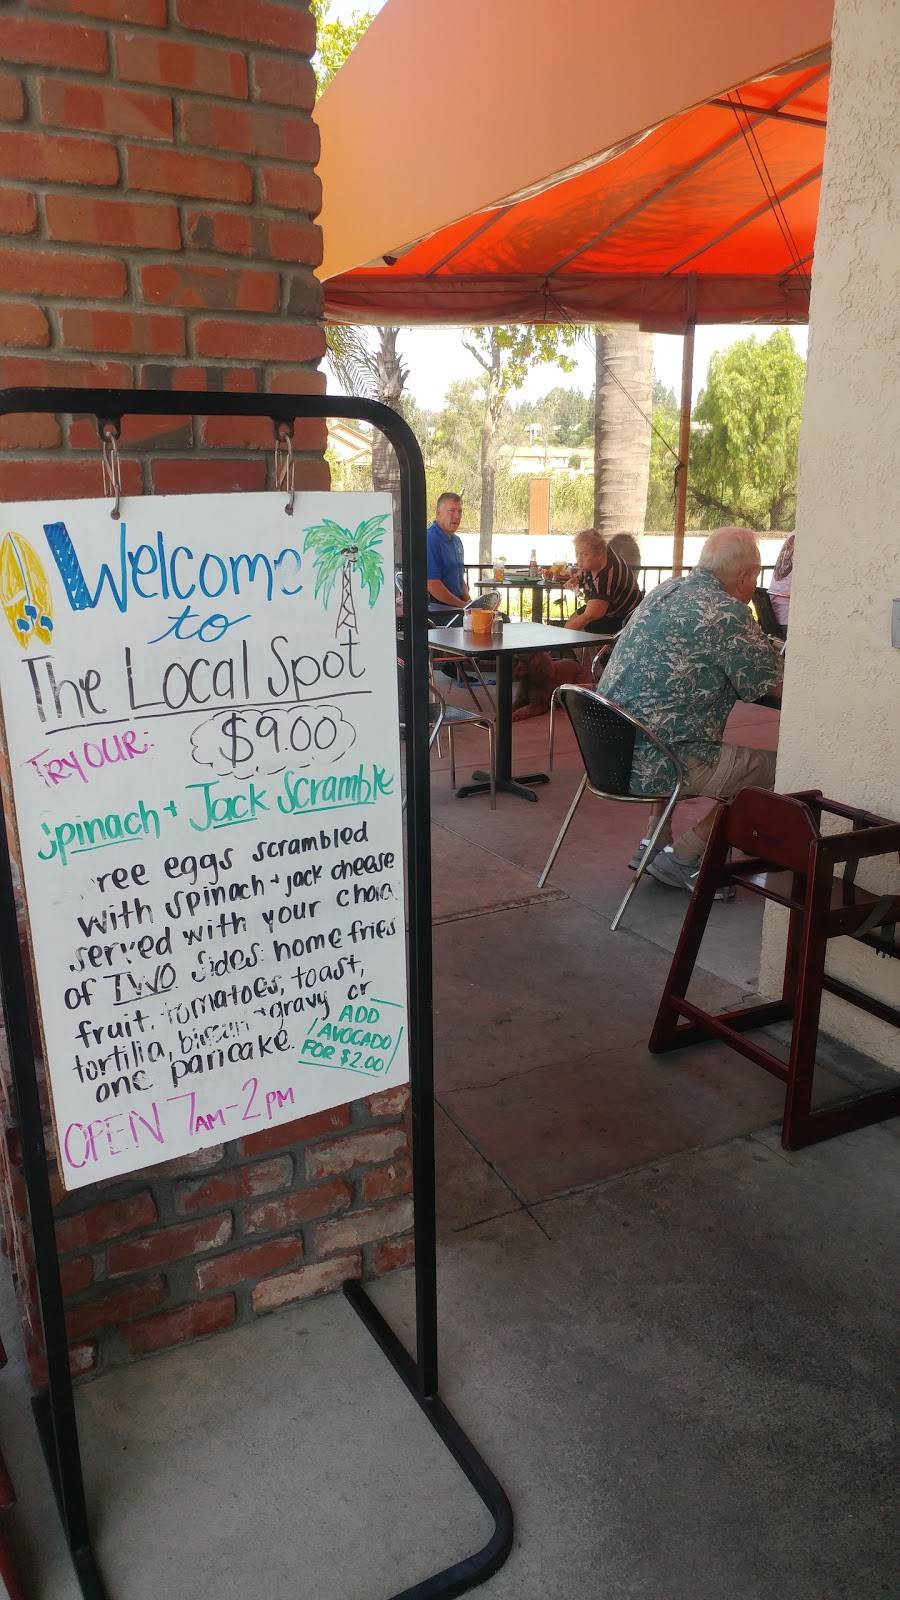 Welcome
to
The Local Spot
TRY OUR: $9.00
Spinach + Jack Scramble
ree eggs scrambled
with spinach + jack cheese
served with your choic
of TWO sides: home fries
fruit, tomatoes, toast,
tortilla, + gravy or
one pancake.
ADD
AVOCADO
FOR $2.00
OPEN 7AM-2PM